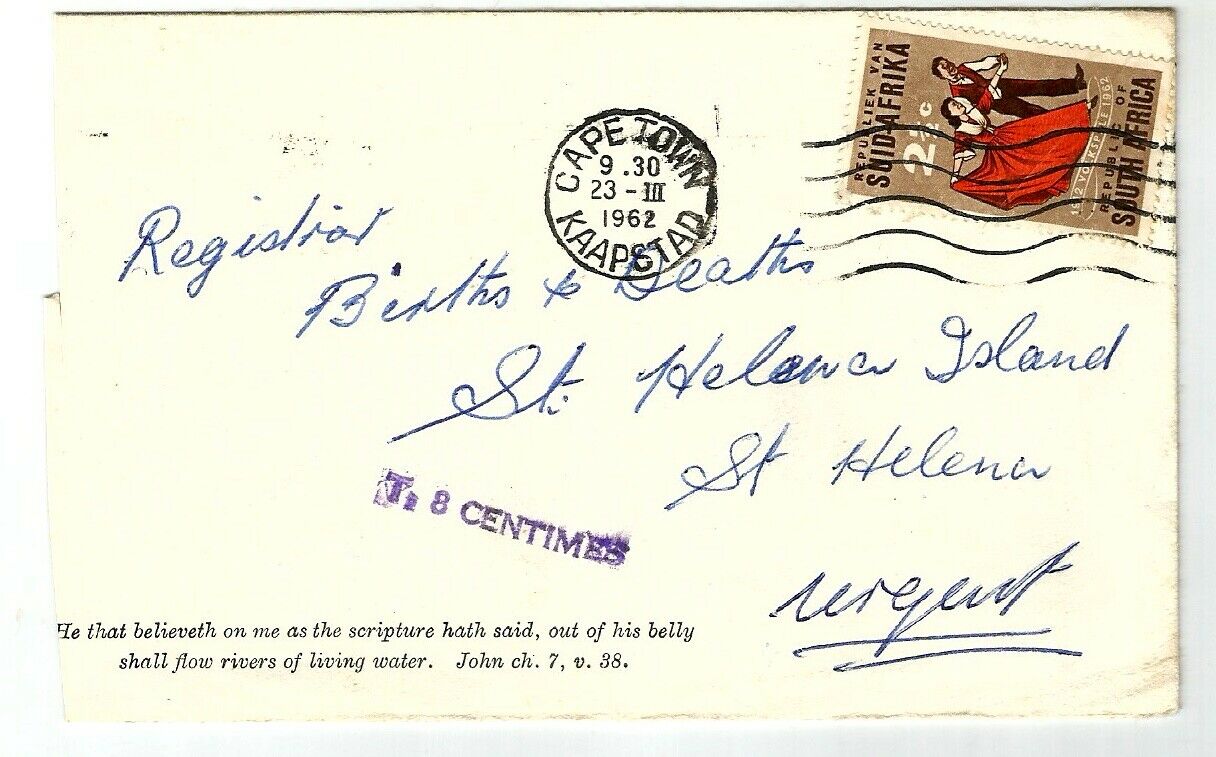 REPUBLIEK VAN
SUID-AFRIKA
2½c
1912 VOLKSPELE 1962
REPUBLIC OF
SOUTH AFRICA
CAPE TOWN
9.30
23-III
1962
KAAPSTAD
Registrar
Births & Deaths
St. Helena Island
St Helena
T. 8 CENTIMES
urgent
He that believeth on me as the scripture hath said, out of his belly
shall flow rivers of living water. John ch. 7, v. 38.